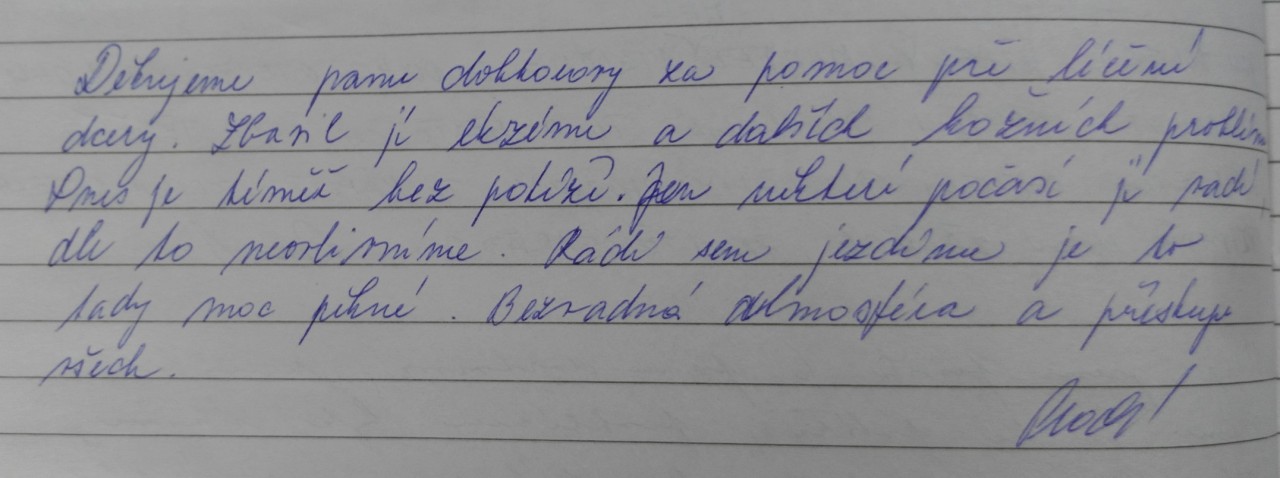 Děkujeme panu doktorovy za pomoc při léčení
dcery. Zbavil jí ekzému a dalších kožních problémů
Dnes je téměř bez potíží. Jen některé počasí jí vadí
ale to neovlivníme. Rádi sem jezdíme je to
tady moc pěkné. Bezvadná atmosféra a přístup
všech.